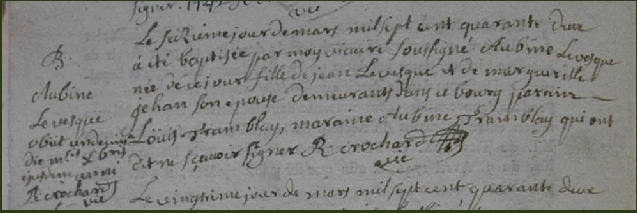 signer. 1742
vic
Le seizieme jour de mars mil sept cent quarante deux
B.
à été baptisée par moy vicaire soussigné Aubine Levesque
née de ce jour fille de jean Levesque et de margueritte
Aubine
jehan son epouse demeurants dans ce bourg parain
Levesque
Louis Tramblay, maraine Aubine Tramblay qui ont
obiit
die
dit ne sçavoir signer R crochard
vic
R crochard
vic
Le vingtieme jour de mars mil sept cent quarante deux